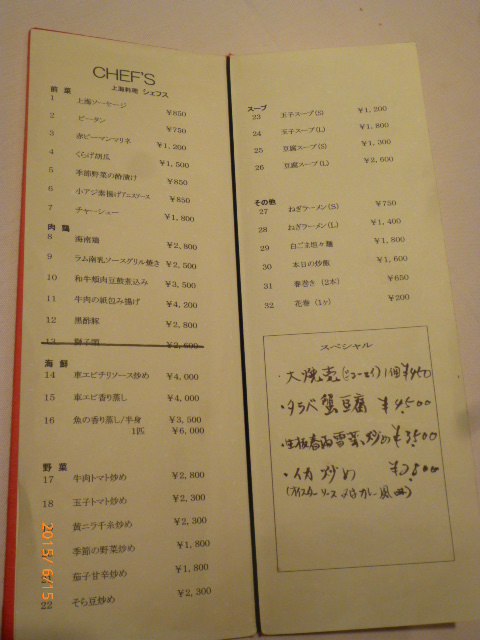 CHEF'S
上海料理 シェフス
前 菜
1 上海ソーセージ ¥850
2 ピータン ¥750
3 赤ピーマンマリネ ¥1,200
4 くらげ胡瓜 ¥1,500
5 季節野菜の酢漬け ¥850
6 小アジ素揚げアニスソース ¥850
7 チャーシュー ¥1,800
肉 鶏
8 海南鶏 ¥2,800
9 ラム南乳ソースグリル焼き ¥2,500
10 和牛頬肉豆鼓煮込み ¥3,500
11 牛肉の紙包み揚げ ¥4,200
12 黒酢豚 ¥2,800
13 獅子頭 ¥2,600
海 鮮
14 車エビチリソース炒め ¥4,000
15 車エビ香り蒸し ¥4,000
16 魚の香り蒸し/半身 ¥3,500
1匹 ¥6,000
野 菜
17 牛肉トマト炒め ¥2,800
18 玉子トマト炒め ¥2,300
黄ニラ千糸炒め ¥2,300
季節の野菜炒め ¥1,800
茄子甘辛炒め ¥1,800
22 そら豆炒め ¥2,300
2015/6/15
スープ
23 玉子スープ(S) ¥1,200
24 玉子スープ(L) ¥1,800
25 豆腐スープ(S) ¥1,300
26 豆腐スープ(L) ¥2,600
その他
27 ねぎラーメン(S) ¥750
28 ねぎラーメン(L) ¥1,400
29 白ごま坦々麺 ¥1,800
30 本日の炒飯 ¥1,600
31 春巻き (2本) ¥650
32 花巻 (1ヶ) ¥200
スペシャル
・大焼売(シューマイ) 1個 ¥450
・タラバ蟹豆腐 ¥4,500
炒め ¥3,500
・イカ炒め ¥2,800